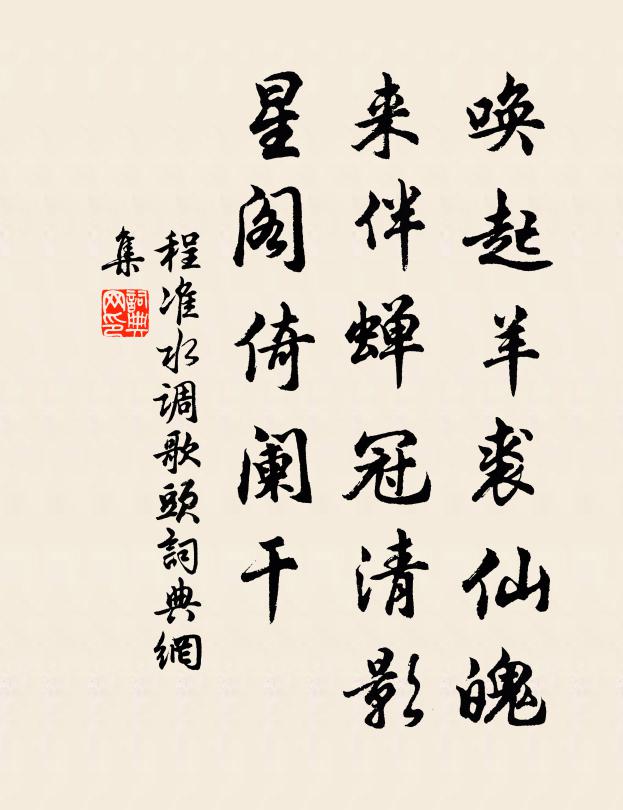 唤起羊裘仙魄
来伴蝉冠清影
星阁倚阑干
程准水调歌頭詞典網
集
詞典网印